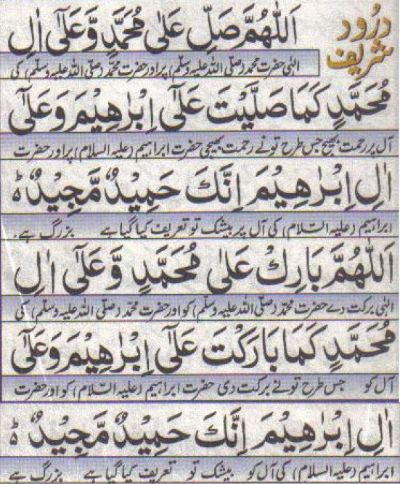 درُود
شریف
اَللّٰهُمَّ صَلِّ عَلٰى مُحَمَّدٍ وَّعَلٰٓى اٰلِ
الٰہی حضرت محمد (صلی اللہ علیہ وسلم) پر اور حضرت محمد (صلی اللہ علیہ وسلم) کی
مُحَمَّدٍ كَمَا صَلَّيْتَ عَلٰٓى اِبْرٰهِيْمَ وَعَلٰٓى
آل پر رحمت بھیج جس طرح تونے رحمت بھیجی حضرت ابراہیم (علیہ السلام) پر اور حضرت
اٰلِ اِبْرٰهِيْمَ اِنَّكَ حَمِيْدٌ مَّجِيْدٌ ط
ابراہیم (علیہ السلام) کی آل پر بیشک تو تعریف کیا گیا ہے بزرگ ہے:
اَللّٰهُمَّ بَارِكْ عَلٰى مُحَمَّدٍ وَّعَلٰٓى اٰلِ
الٰہی برکت دے حضرت محمد (صلی اللہ علیہ وسلم) کو اور حضرت محمد (صلی اللہ علیہ وسلم) کی
مُحَمَّدٍ كَمَا بَارَكْتَ عَلٰٓى اِبْرٰهِيْمَ وَعَلٰٓى
آل کو جس طرح تونے برکت دی حضرت ابراہیم (علیہ السلام) کو اور حضرت
اٰلِ اِبْرٰهِيْمَ اِنَّكَ حَمِيْدٌ مَّجِيْدٌ ط
ابراہیم (علیہ السلام) کی آل کو بیشک تو تعریف کیا گیا ہے بزرگ ہے